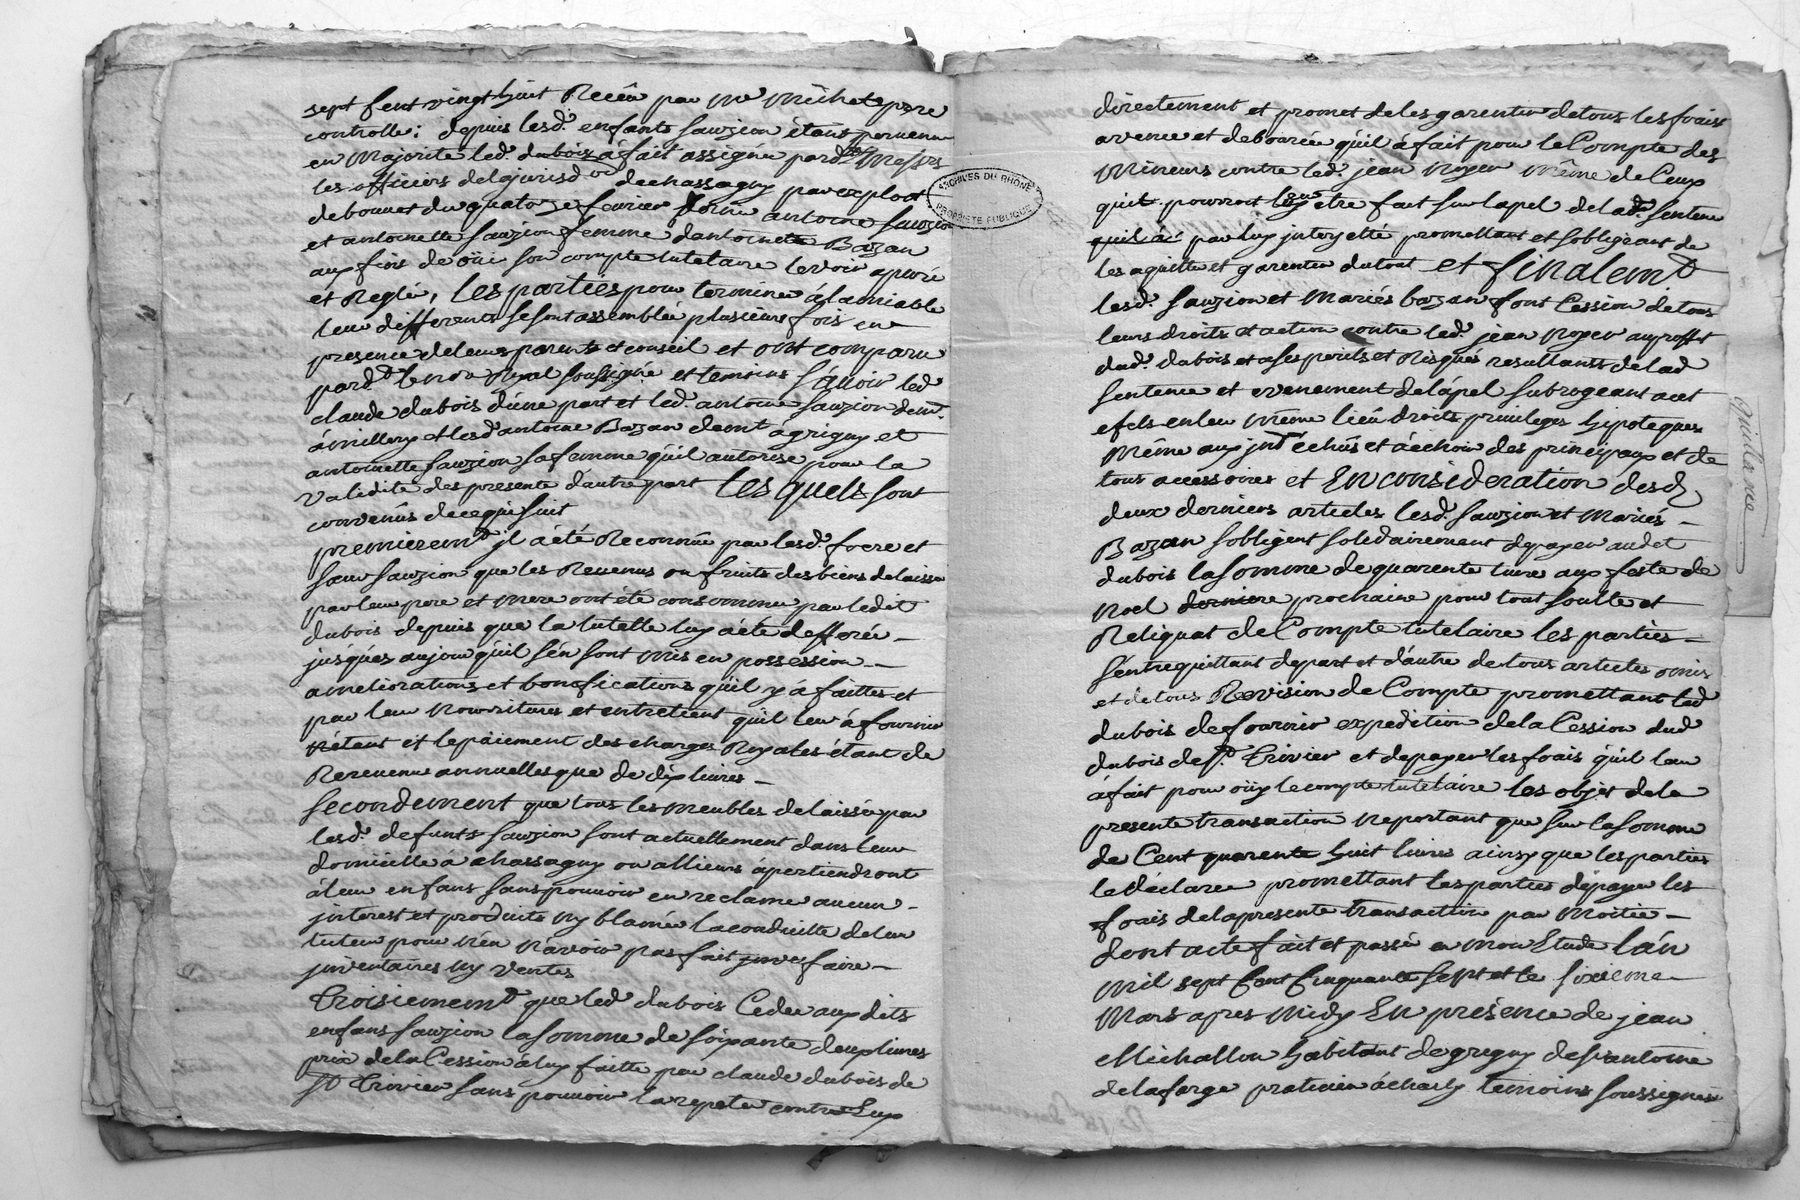 sept cent vingt huit Receu par Me Michel pere
controlle; depuis lesd. enfants sauzion étans parvenu
en Majorite led. dubois á fait assigné pard. Messrs
les officiers delajurisdon de chassagny par exploit
de bonnet du quatorze fevrier dernier antoine sauzion
et antoinette sauzion femme dantoine Bazan
aux fins de oüir son compte tutelaire levoir apuré
et Reglé, Les parties pour terminer álamiable
leur differents se sont assemblée plusieurs fois en
presence de leurs parents et conseil et ont comparu
pard. le nore Royal soussigné et temoins Sçavoir led
claude dubois d'une part et led. antoine sauzion demt.
ámillery et lesd antoine Bazan demt ágrigny et
antoinette sauzion sa femme qu'il autorise pour la
validité des presente dautre part Les quels sont
convenûs dece qui suit
premieremt jl áété Reconnu par lesd. frere et
sœur sauzion que les Revenus ou fruits des biens delaissé
par leur pere et mere ont été consommer par ledit
dubois depuis que la tutelle luy áété defferée
jusques aujour qu'il s'en sont mis en possession
ameliorations et bonnifications qu'il y á faittes et
par leur nourritures et entretient qu'il leur á fournir
n'étant et lepaiement des charges Royales étant de
Revenue annuelles que de dix livres
Secondement que tous les meubles delaissée par
lesd. defunts sauzion sont actuellement dans leur
domicille á chassagny ou allieurs ápertiendront
áleur enfans sans pouvoir en reclamer aucun
jnterest et produits ny blamer la conduitte deleur
tuteur pour n'en n'avoir pas fait faire
jnventaires ny ventes
Troisiememt que led. dubois Cedee aux dits
enfans sauzion la somme de soixante deux livres
prix dela Cession áluy faitte par claude dubois de
St Trivier sans pouvoir la repeter contre Luy
ARCHIVES DU RHÔNE
PROPRIÉTÉ PUBLIQUE
directement et promet deles garentir detous les frais
avence et debourcée qu'il á fait pour le Compte des
Mineurs contre led. jean Royer même de Ceux
quil pourroit être fait sur lapel de lad. sentence
qu'il á par luy jnterjetté promettant et sobligeant de
les aquitter et garentir dutout et finalemt
lesd. sauzion et Mariés bazan font Cession detous
leurs droits et action contre led. jean Royer auproffit
dud. dubois et á ses perils et Risques resultants delad
sentence et evenement delápel subrogeant acet
efets en leur même lieu droits privileges hipoteques
Même aux jnts echûs et áechoir des principaux et de
tous accessoires et En consideration desd
deux derniers articles lesd. sauzion et Mariés
Bazan sobligent solidairement depayer audit
dubois la somme de quarente livre aux feste de
Noel prochaine pour tout soulte et
Reliquat de Compte tutelaire les parties
s'entrequittant depart et d'autre detous articles omis
et detous Revision de Compte promettant led
dubois de fournir expedition dela Cession dud
dubois de St. Trivier et depayer les frais qu'il leur
á fait pour oüir lecompte tutelaire les objet dela
presente transaction ne portant que sur la somme
de Cent quarente huit livres ainsy que les parties
le déclarer promettant les parties depayer les
frais delapresente transaction par Moitié
dont acte fait et passé en mon Etude Lán
mil sept Cent Cinquante sept et le sixieme
Mars apres Midy En présence de jean
Michallon habitant de grigny desrantoine
delaforge praticien ácharly temoins soussignés
quitance